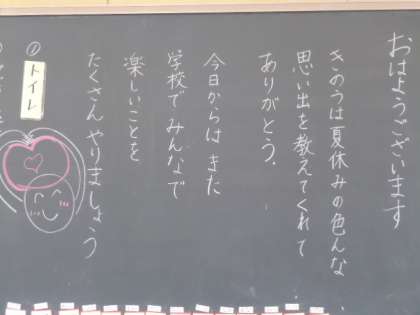 おはようございます
きのうは夏休みの色んな
思い出を教えてくれて
ありがとう.
今日からは また
学校で みんなで
楽しいことを
たくさん やりましょう
トイレ